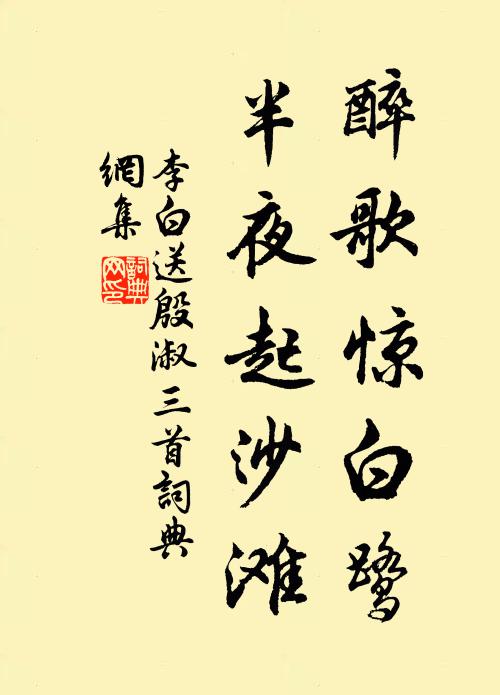 醉歌惊白鹭
半夜起沙滩
李白送殷淑三首詞典
網集
詞典
网印